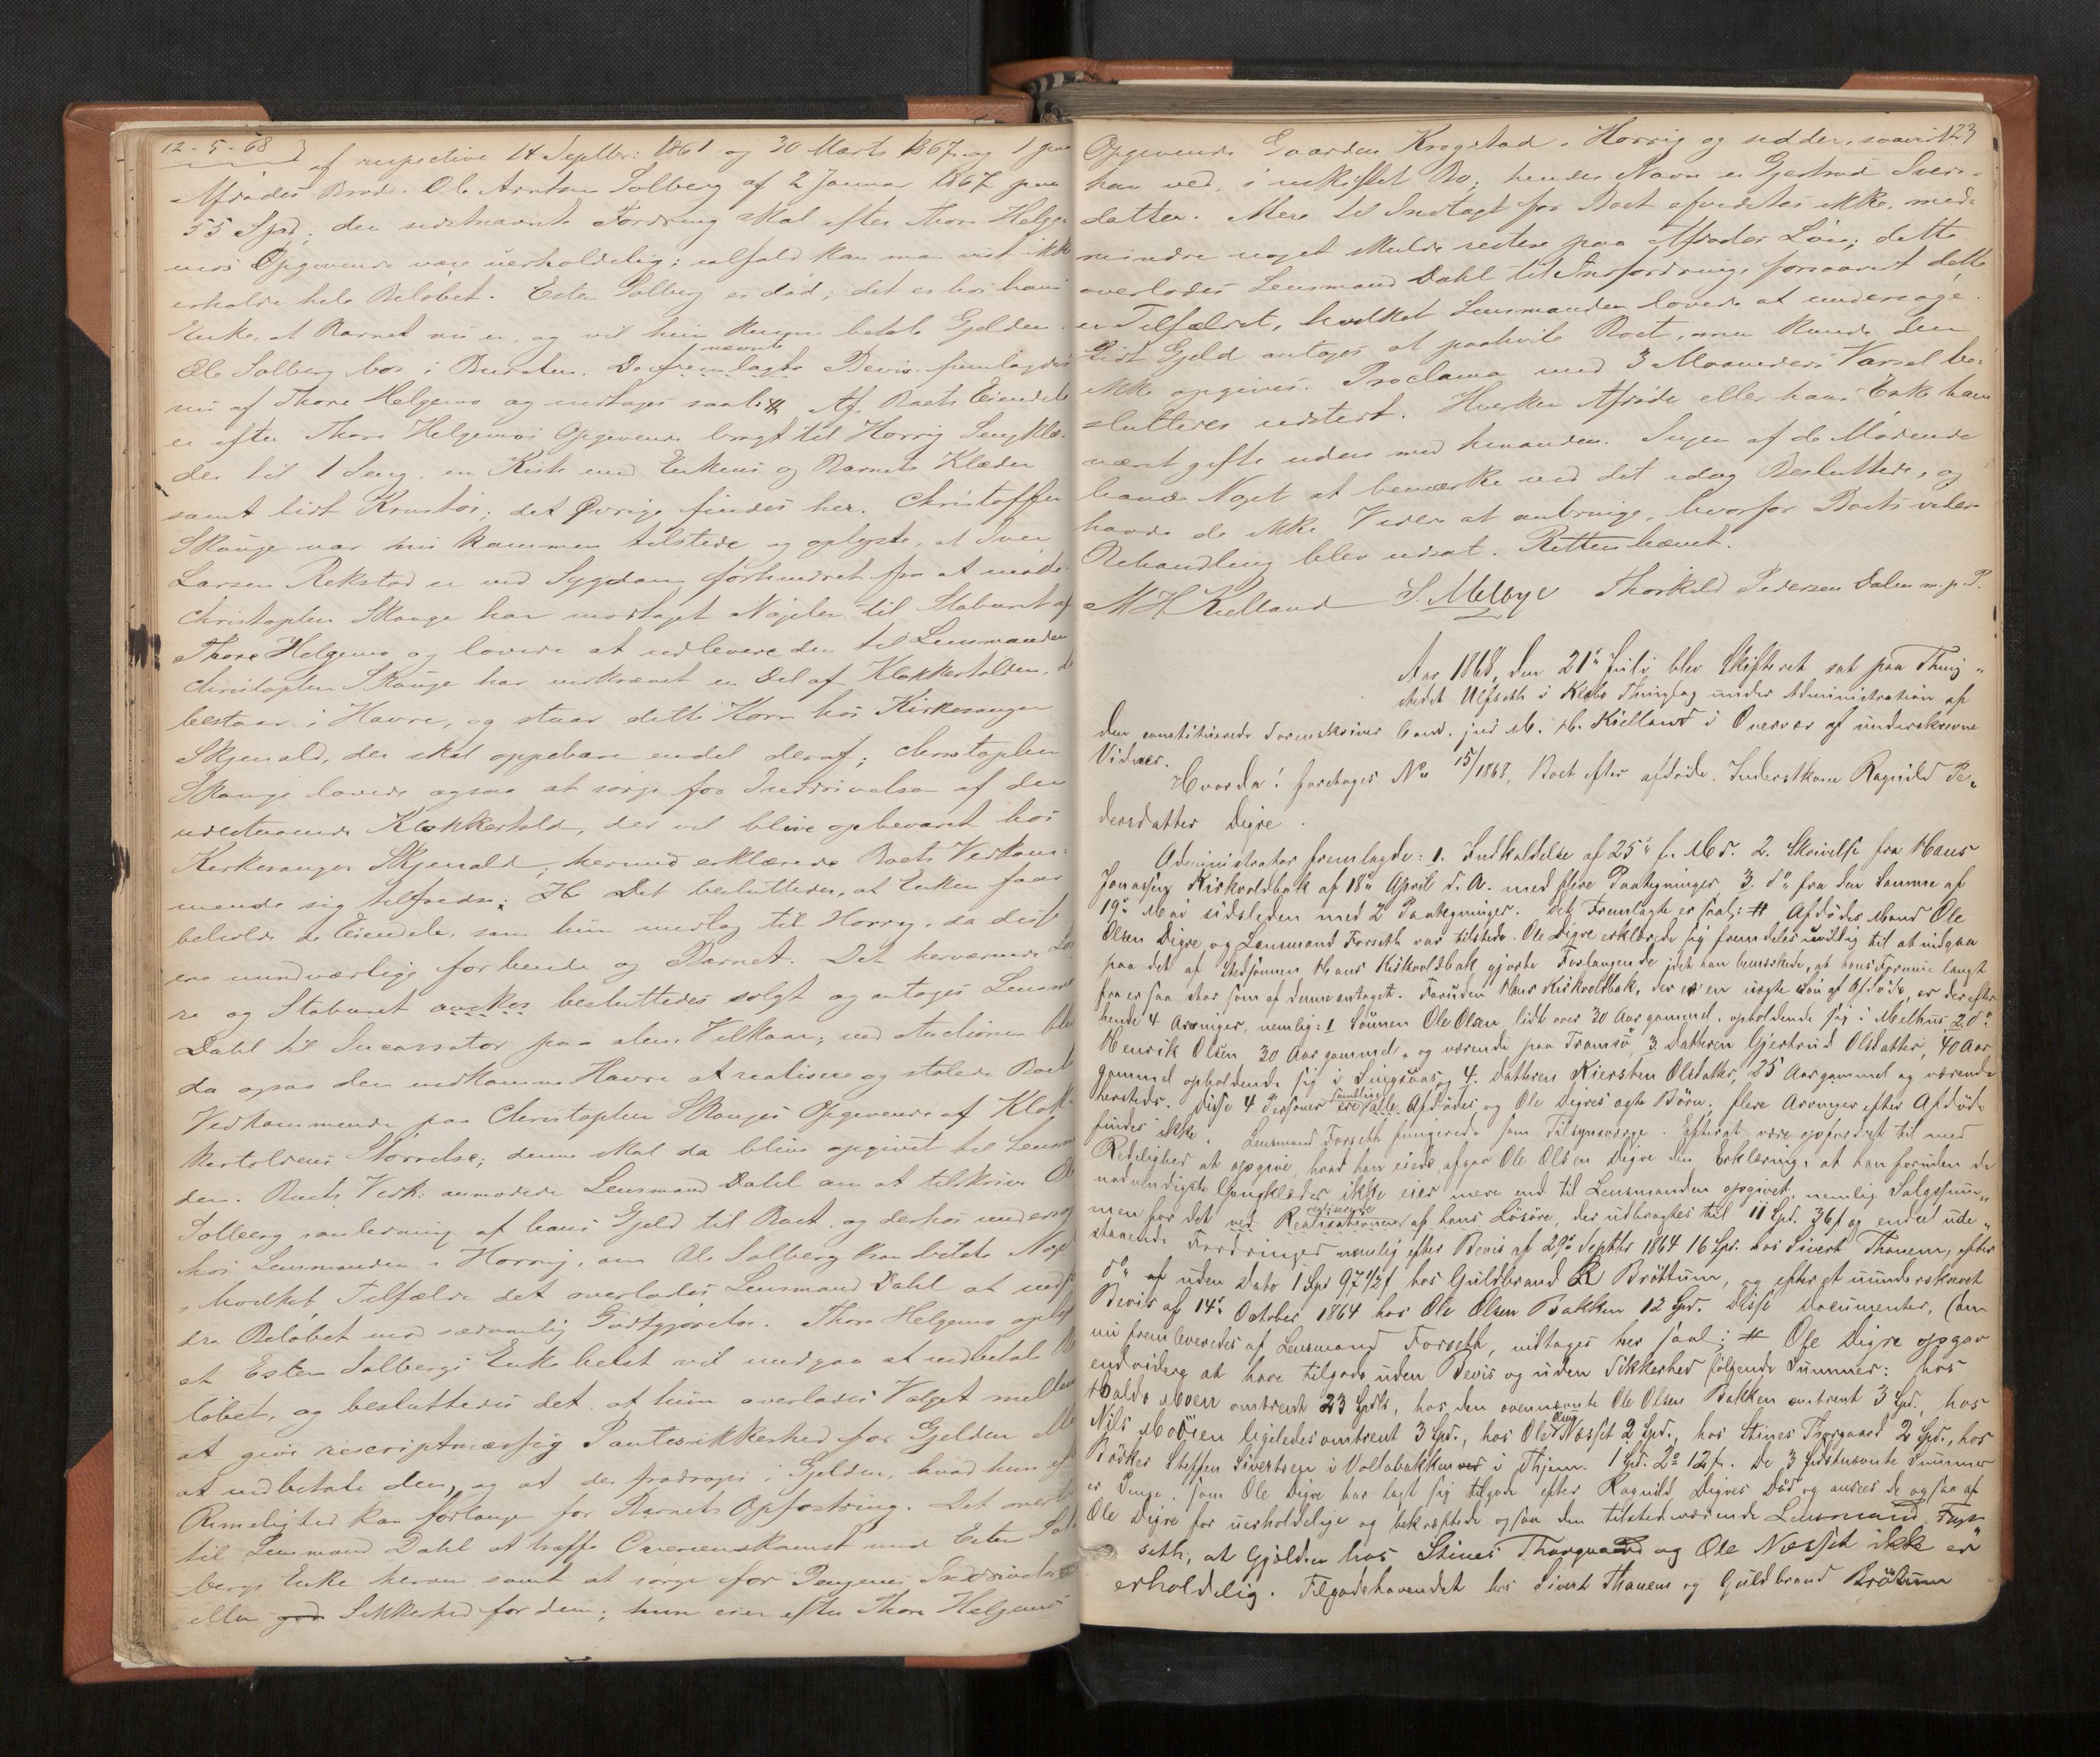 12-5-68
af respective 14 Septbr: 1861 og 30 Marts 1867 og 1 paa
Afdødes Broder Ole Arntsen Solberg af 2 Januar 1867 paa
55 Spd; den sidstnævnte Fordring skal efter Thore Helge
mos Opgivende være uerholdelig; ialfald kan man vist ikke
erholde hele Beløbet. Esten Solberg er død; det er hos hans
Enke, at Barnet nu er, og vil hun kunne betale Gjelden.
Ole Solberg bor i Budalen. De nævnte Bevis fremlagdes
nu af Thore Helgemo og indtages saal: # Af Boets Eiendele
er efter Thore Helgemos Opgivende bragt til Horrig Sengklæ-
der til 1 Seng, en Kiste med Enkens og Barnets Klæder
samt lidt Krustøi; det Øvrige findes her. Christoffer
Skauge var nu kommen tilstede og oplyste, at Sven
Larsen Rekstad er ved Sygdom forhindret fra at møde.
Christopher Skauge har modtaget Nøglen til Staburet af
Thore Helgemo og lovede at udlevere den til Lensmanden
Christopher Skauge har indkrævet en Del af Klokkertolden, d
bestaar i Havre, og staar dette Korn hos Kirkesanger
Skjenald, der skal oppebære endel deraf; Christopher
Skauge lovede ogsaa at sørge for Inddrivelsen af den
udestaaende Klokkertold, der vil blive opbevaret hos
Kirkesanger Skjenald; hermed erklærede Boets Vedkom-
mende sig tilfredse; Det besluttedes, at Enken faar
beholde de Eiendele, som hun medtog til Horrig, da disse
ere uundværlige for hende og Barnet. Det herværende Lø
re og Staburet ønskes besluttedes solgt og antages Lensm
Dahl til Incassator paa alm. Vilkaar; ved Auctionen bliv
da ogsaa den indkomne Havre at realisere og stolede Boets
Vedkommende paa Christopher Skauges Opgivende af Klok
kertoldens Størrelse; denne skal da blive opgivet til Lensm
den. Boets Vedk: anmodede Lensmand Dahl om at tilskrive Ole
Solberg i anledning af hans Gjeld til Boet, og derhos undersøg
hos Lensmanden i Horrig, om Ole Solberg kan betale Noget
i hvilket Tilfælde det overlades Lensmand Dahl at ind
dre Beløbet mod sædvanlig Godtgjørelse. Thore Helgemo oplys
at Esten Solbergs Enke helst vil undgaa at indbetale Be
løbet, og besluttedes det, at hun overlades Valget mellem
at give rescriptmæssig Pantesikkerhed for Gjelden
at indbetale den, og at der fradrages i Gjelden, hvad hun ef
Rimelighed kan forlange for Barnets Opfostring. Det overl
til Lensmand Dahl at træffe Overenskomst med Esten Sol
bergs Enke herom samt at sørge for Pengenes Inddrivelse
eller god Sikkerhed for dem; hun eier efter Thore Helgemos
123
Opgivende Gaarden Krogstad i Horrig og sidder, saavidt
han ved, i uskiftet Bo; hendes Navn er Gjertrud Svens-
datter. Mere til Indtægt for Boet afvidstes ikke, med-
mindre noget skulde restere paa Afdødes Løn; dette
overlodes Lensmand Dahl til Indfordring, forsaavidt dette
er Tilfældet, hvilket Lensmanden lovede at undersøge.
Lidt Gjeld antages at paahvile Boet, men kunde den
ikke opgives. Proclama med 3 Maaneders Varsel be-
sluttedes udstedt. Hverken Afdøde eller hans Enke have
været gifte uden med hinanden. Ingen af de Mødende
havde Noget at bemærke ved det idag Besluttede, og
havde de ikke Videre at anbringe, hvorfor Boets videre
Behandling blev udsat. Retten hævet.
M H Kielland S. Melbye Thorkild Pedersen Dalen m. p. P.
Aar 1868, den 21de Juli blev Skifteret sat paa Thing-
stedet Ulfseth i Klæbo Thinglag under Administration af
den constituerede Sorenskriver Cand. jud M. H. Kielland i Overvær af underskrevne
Vidner.
Hvorda: foretoges No 15/1868, Boet efter afdøde Inderstkone Ragnild Pe-
dersdatter Digre.
Administrator fremlagde: 1. Indkaldelse af 25de f. Md. 2. Skrivelse fra Hans
Jonassen Kirkvoldbak af 18de April d. A. med flere Paategninger 3. do fra den Samme af
19de Mai sidstleden med 2 Paategninger. Det Fremlagte er saal: # Afdødes Mand Ole
Olsen Digre og Lensmand Forseth var tilstede. Ole Digre erklærede sig fremdeles uvillig til at indgaa
paa det af Stedsønnen Hans Kirkvoldbak gjorte Forlangende idet han bemærkede, at hans Formue langt
fra er saa stor som af denne antaget. Foruden Hans Kirkvoldbak, der er en uægte Søn af Afdøde, er der efter
hende 4 Arvinger, nemlig: 1 Sønnen Ole Olsen, lidt over 30 Aar gammel, opholdende sig i Melhus 2 do.
Henrik Olsen, 30 Aar gammel, og værende paa Tromsø, 3. Datteren Gjertrud Olsdatter, 40 Aar
gammel opholdende sig i Singsaas, og 4. Datteren Kiersten Olsdatter, 25 Aar gammel og værende
hersteds. Disse 4 Personer ere samtlige alle Afdødes og Ole Digres ægte Børn; flere Arvinger efter Afdøde
findes ikke. Lensmand Forseth fungerede som Tilsynsværge. Efterat være opfordret til med
Redelighed at opgive, hvad han eiede, afgav Ole Olsen Digre den Erklæring, at han foruden de
nødvendigste Gangklæder ikke eier mere end til Lensmanden opgivet, nemlig Salgssum-
men for det ved Realisationen af hans Løsøre, der udbragtes til 11 Spd. 36 s og endel ude-
staaende Fordringer nemlig efter Bevis af 29de Septbr 1864 16 Spd. hos Sivert Thanem, efter
do af uden Dato 1 Spd 97 1/2 s hos Guldbrand R Brøttum, og efter et uunderskrevet
Bevis af 14de October 1864 hos Ole Olsen Bakken 12 Spd. Disse Documenter, som
nu fremleveredes af Lensmand Forseth, indtages her saal: # Ole Digre opgav
endvidere at have tilgode uden Bevis og uden Sikkerhed følgende Summer: hos
Haldo Moen omtrent 23 Spd., hos den ovennævnte Ole Olsen Bakken omtrent 3 Spd., hos
Nils Moöien ligeledes omtrent 3 Spd., hos Ole Olsen Næsset 2 Spd., hos Stines Thorgaard 2 Spd., hos
Bødker Steffen Sivertsen i Vollabakken ved i Thjem. 1 Spd. 2 o 12 s. De 3 sidstnævnte Summer
er Penge, som Ole Digre har lagt sig tilgode efter Ragnild Digres Død og ansees de ogsaa af
Ole Digre for uerholdelige og bekræftede ogsaa den tilstedeværende Lensmand For-
seth, at Gjælden hos Stines Thorgaard og Ole Næsset ikke er
erholdelig. Tilgodehavendet hos Sivert Thanem og Guldbrand Brøttum